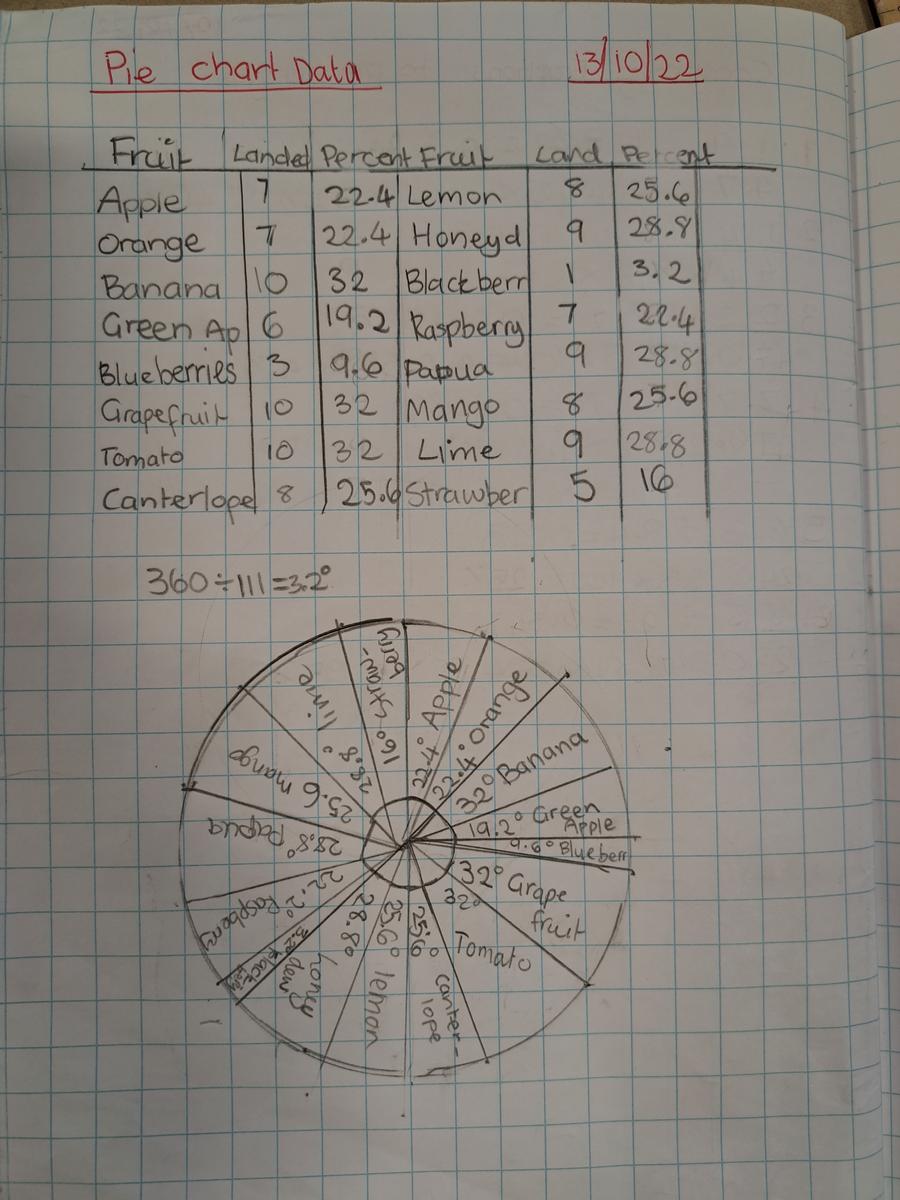 Pie chart Data 13/10/22
Fruit Landed Percent Fruit Land Percent
Apple 7 22.4 Lemon 8 25.6
Orange 7 22.4 Honeyd 9 28.8
Banana 10 32 Blackberr 1 3.2
Green Ap 6 19.2 Raspberry 7 22.4
Blueberries 3 9.6 Papua 9 28.8
Grapefruit 10 32 Mango 8 25.6
Tomato 10 32 Lime 9 28.8
Canterlope 8 25.6 Strawber 5 16
360÷111=3.2°
22.4° Apple
22.4° Orange
32° Banana
19.2° Green
Apple
9.6° Blueberr
32° Grape
fruit
32°
Tomato
25.6°
canter-
lope
25.6° lemon
28.8°
honey
dew
3.2° black
berry
22.2° Raspberry
28.8° Papua
25.6 mango
28.8° lime
16° straw-
berry